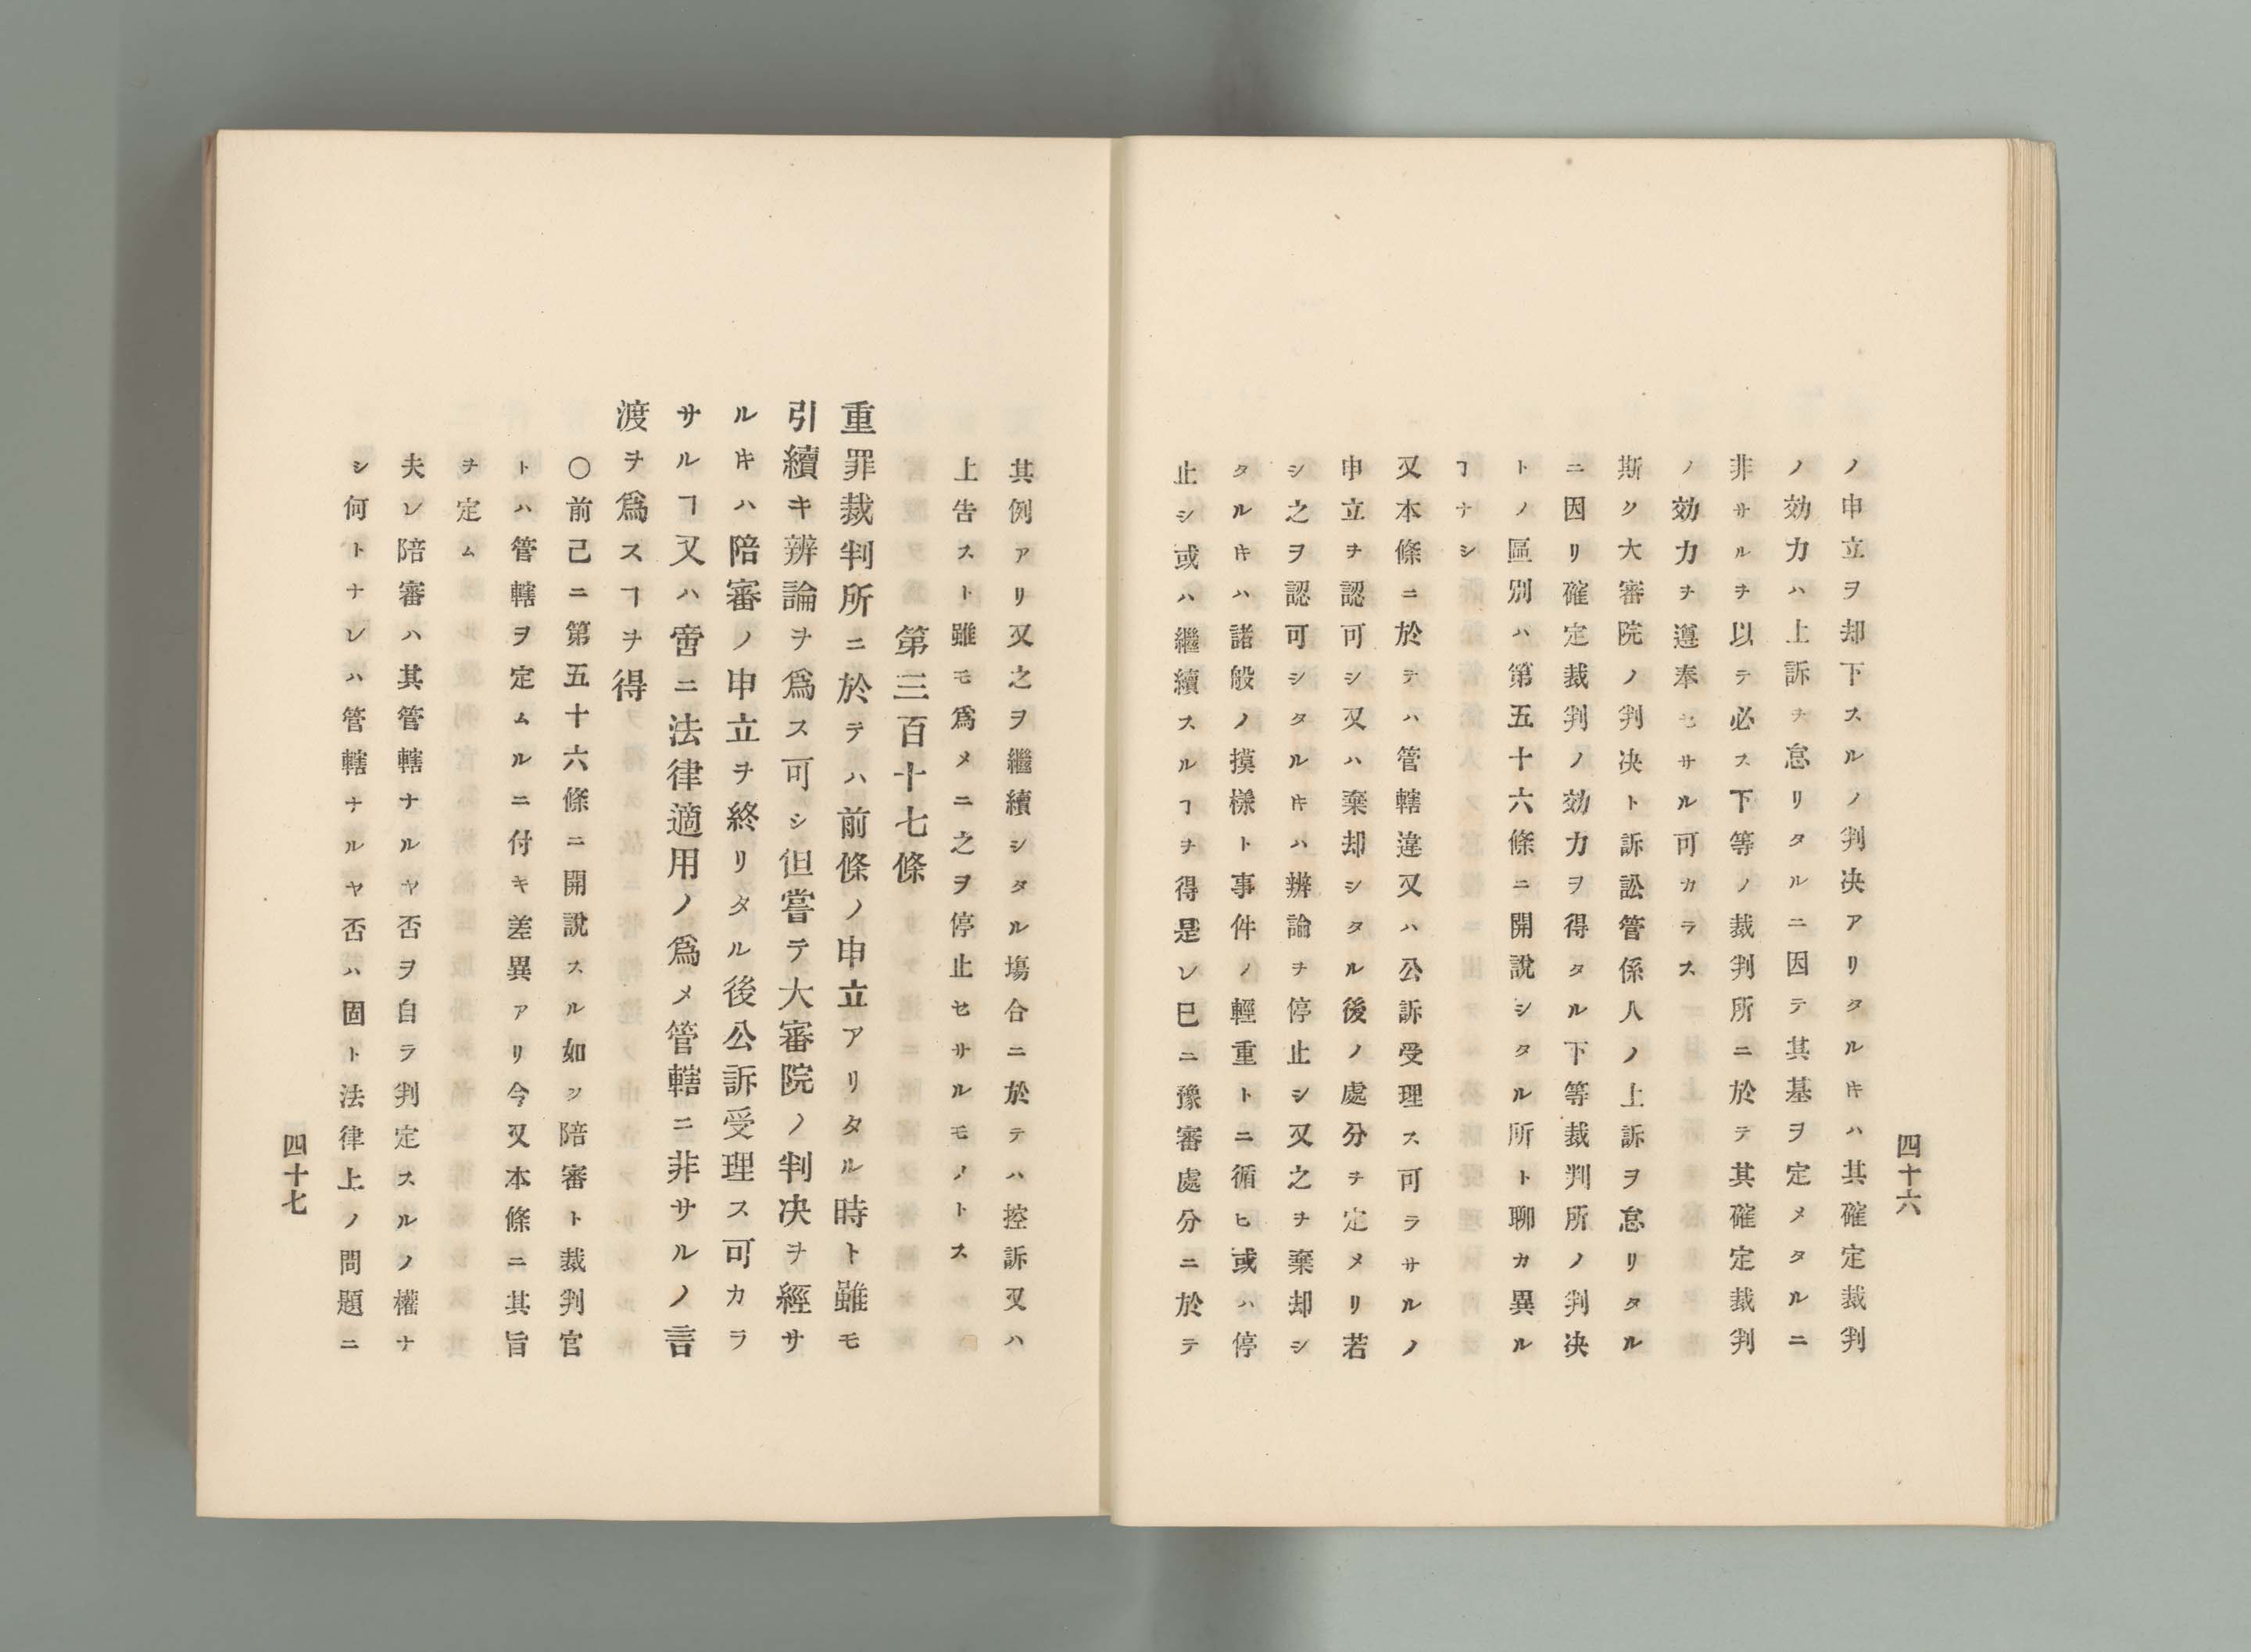 四十六
ノ申立ヲ却下スルノ判决アリタルキハ其確定裁判
ノ効力ハ上訴ヲ怠リタルニ因テ其基ヲ定メタルニ
非サルヲ以テ必ス下等ノ裁判所ニ於テ其確定裁判
ノ効力ヲ遵奉セサル可カラス
斯ク大審院ノ判决ト訴訟管係人ノ上訴ヲ怠リタル
ニ因リ確定裁判ノ効力ヲ得タル下等裁判所ノ判决
トノ區別ハ第五十六條ニ開說シタル所ト聊カ異ル
ヿナシ
又本條ニ於テハ管轄違又ハ公訴受理ス可ラサルノ
申立ヲ認可シ又ハ棄却シタル後ノ處分ヲ定メリ若
シ之ヲ認可シタルキハ辨論ヲ停止シ又之ヲ棄却シ
タルキハ諸般ノ摸樣ト事件ノ輕重トニ循ヒ或ハ停
止シ或ハ繼續スルヿヲ得是レ已ニ豫審處分ニ於テ
其例アリ又之ヲ繼續シタル塲合ニ於テハ控訴又ハ
上告スト雖モ爲メニ之ヲ停止セサルモノトス
第三百十七條
重罪裁判所ニ於テハ前條ノ申立アリタル時ト雖モ
引續キ辨論ヲ爲ス可シ但嘗テ大審院ノ判决ヲ經サ
ルキハ陪審ノ申立ヲ終リタル後公訴受理ス可カラ
サルヿ又ハ啻ニ法律適用ノ爲メ管轄ニ非サルノ言
渡ヲ爲スヿヲ得
〇前己ニ第五十六條ニ開說スル如ク陪審ト裁判官
トハ管轄ヲ定ムルニ付キ差異アリ今又本條ニ其旨
ヲ定ム
夫レ陪審ハ其管轄ナルヤ否ヲ自ラ判定スルノ權ナ
シ何トナレハ管轄ナルヤ否ハ固ト法律上ノ問題ニ
四十七